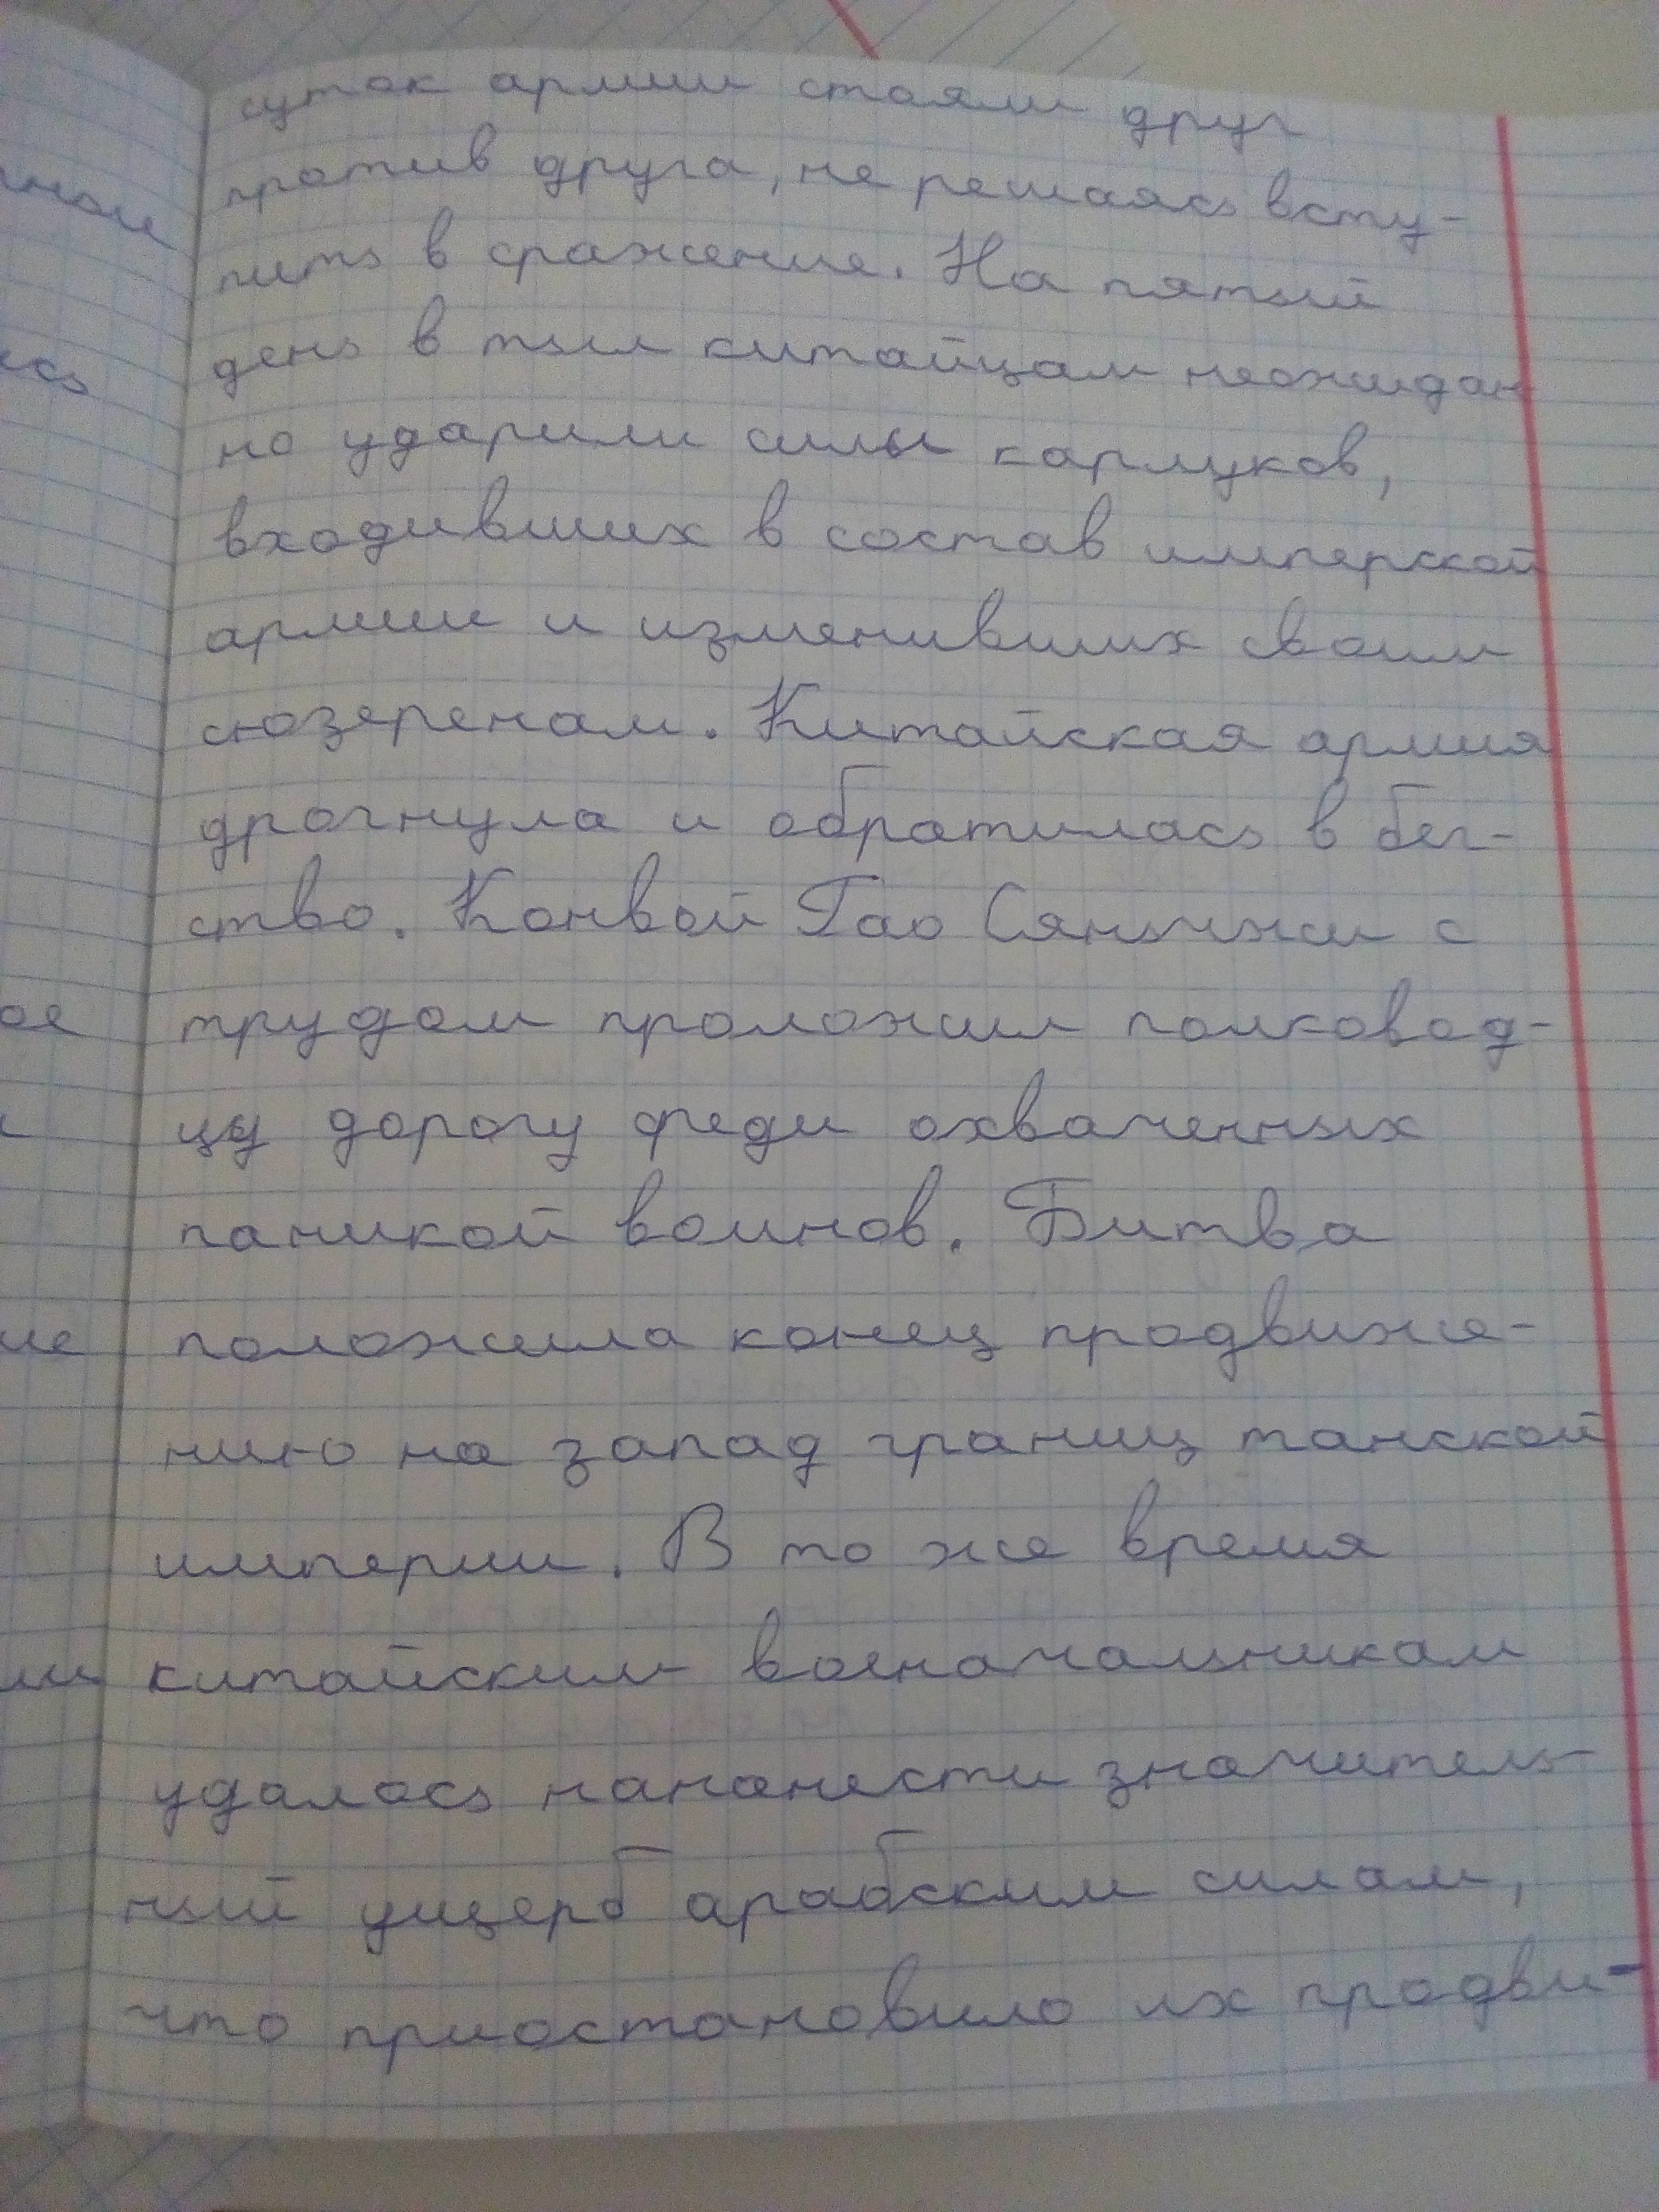 суток армии стояли друг
против друга, не решаясь всту-
пить в сражение. На пятый
день в тыл китайцам неожидан
но ударили силы карлуков,
входивших в состав имперской
армии и изменивших своим
сюзеренам. Китайская армия
дрогнула и обратилась в бег-
ство. Конвой Гао Сяньчжи с
трудом проложил полковод-
цу дорогу среди охваченных
паникой воинов. Битва
положила конец продвиже-
нию на запад границ танской
империи. В то же время
китайским военачальникам
удалось нананести значитель-
ный ущерб арабским силам,
что приостановило их продви-